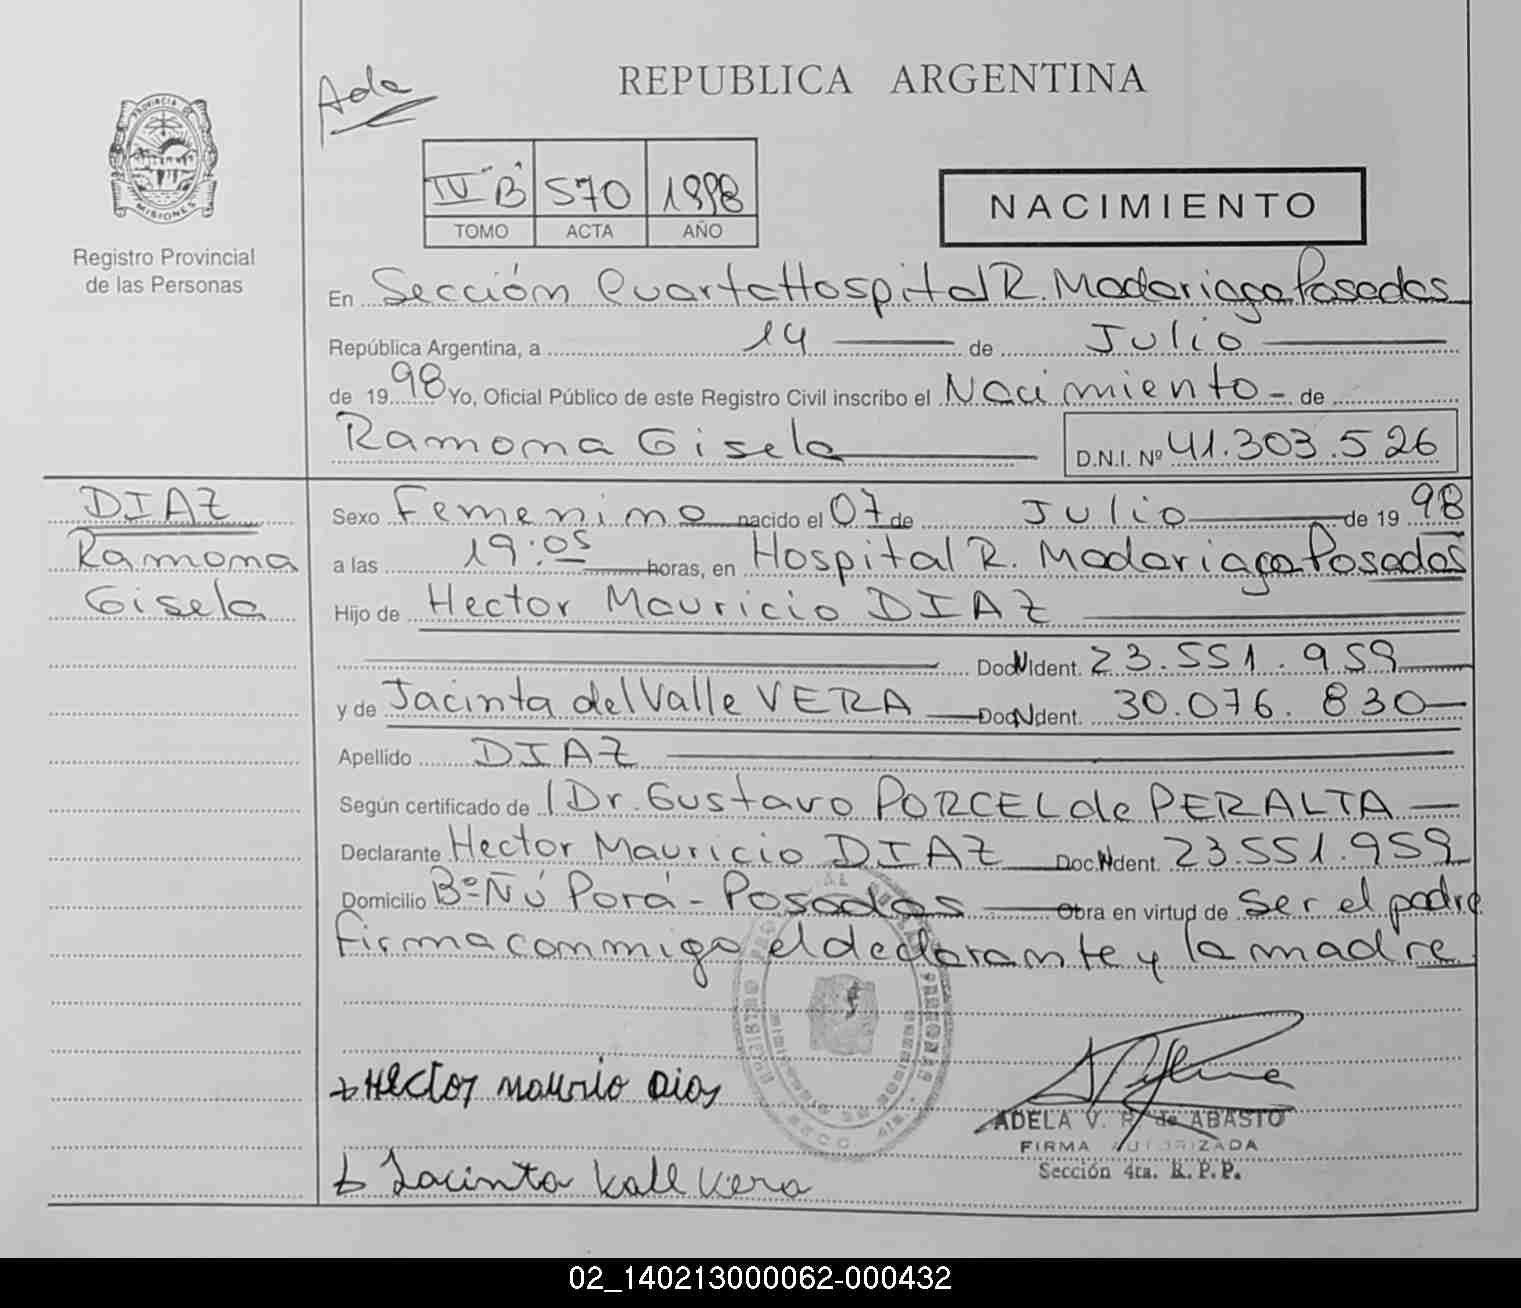 Ada
REPUBLICA ARGENTINA
PROVINCIA DE
MISIONES
Registro Provincial
de las Personas
IV "B" 570 1998
TOMO ACTA AÑO
NACIMIENTO
En Sección Cuarta Hospital R. Madariaga Posadas
República Argentina, a 14 de Julio
de 1998 Yo, Oficial Público de este Registro Civil inscribo el Nacimiento - de
Ramona Gisela D.N.I. Nº 41.303.526
DIAZ
Ramona
Gisela
Sexo Femenino nacido el 07 de Julio de 1998
a las 19:05 horas, en Hospital R. Madariaga Posadas
Hijo de Hector Mauricio DIAZ
Doc. N Ident. 23.551.959
y de Jacinta del Valle VERA Doc. N Ident. 30.076.830
Apellido DIAZ
Según certificado de l Dr. Gustavo PORCEL de PERALTA
Declarante Hector Mauricio DIAZ Doc. N Ident. 23.551.959
Domicilio Bº Ñú Porá - Posadas Obra en virtud de Ser el padre
firma conmigo el declarante y la madre
Hector Maurio Dias
ADELA V. R. de ABASTO
FIRMA AUTORIZADA
Sección 4ta. R. P. P.
Jacinta Valle Vera
02_140213000062-000432